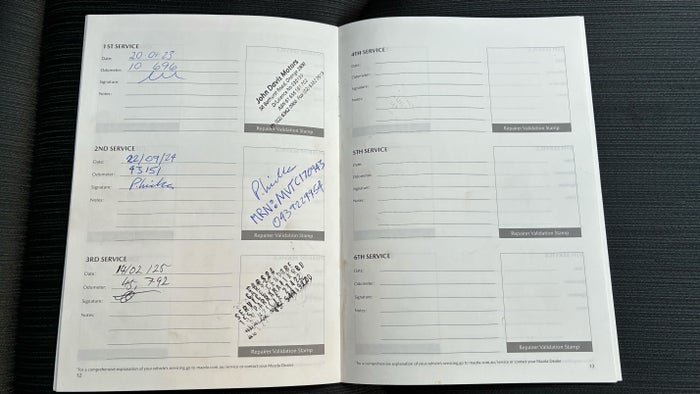 1ST SERVICE
Date: 20-01-23
Odometer: 10 696
Signature:
Notes:
John Davis Motors
Repairer Validation Stamp
2ND SERVICE
Date: 22/09/24
Odometer: 43151
Signature:
Notes:
MRN:MVTC170943
Repairer Validation Stamp
3RD SERVICE
Date: 14/02/25
Odometer: 45,792
Signature:
Notes:
Repairer Validation Stamp
For a comprehensive explanation of your vehicle's servicing go to mazda.com.au/service or contact your Mazda Dealer.
12
4TH SERVICE
Date:
Odometer:
Signature:
Notes:
Repairer Validation Stamp
5TH SERVICE
Date:
Odometer:
Signature:
Notes:
Repairer Validation Stamp
6TH SERVICE
Date:
Odometer:
Signature:
Notes:
Repairer Validation Stamp
For a comprehensive explanation of your vehicle's servicing go to mazda.com.au/service or contact your Mazda Dealer.
13